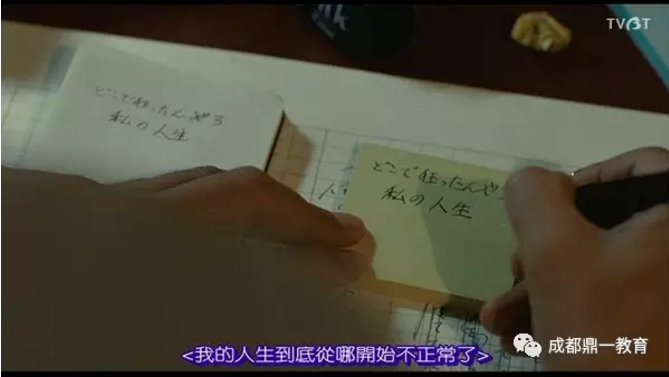 TVBT
どこで狂ったんやろ
私の人生
どこで狂ったんや
私の人生
<我的人生到底從哪開始不正常了>
成都鼎一教育